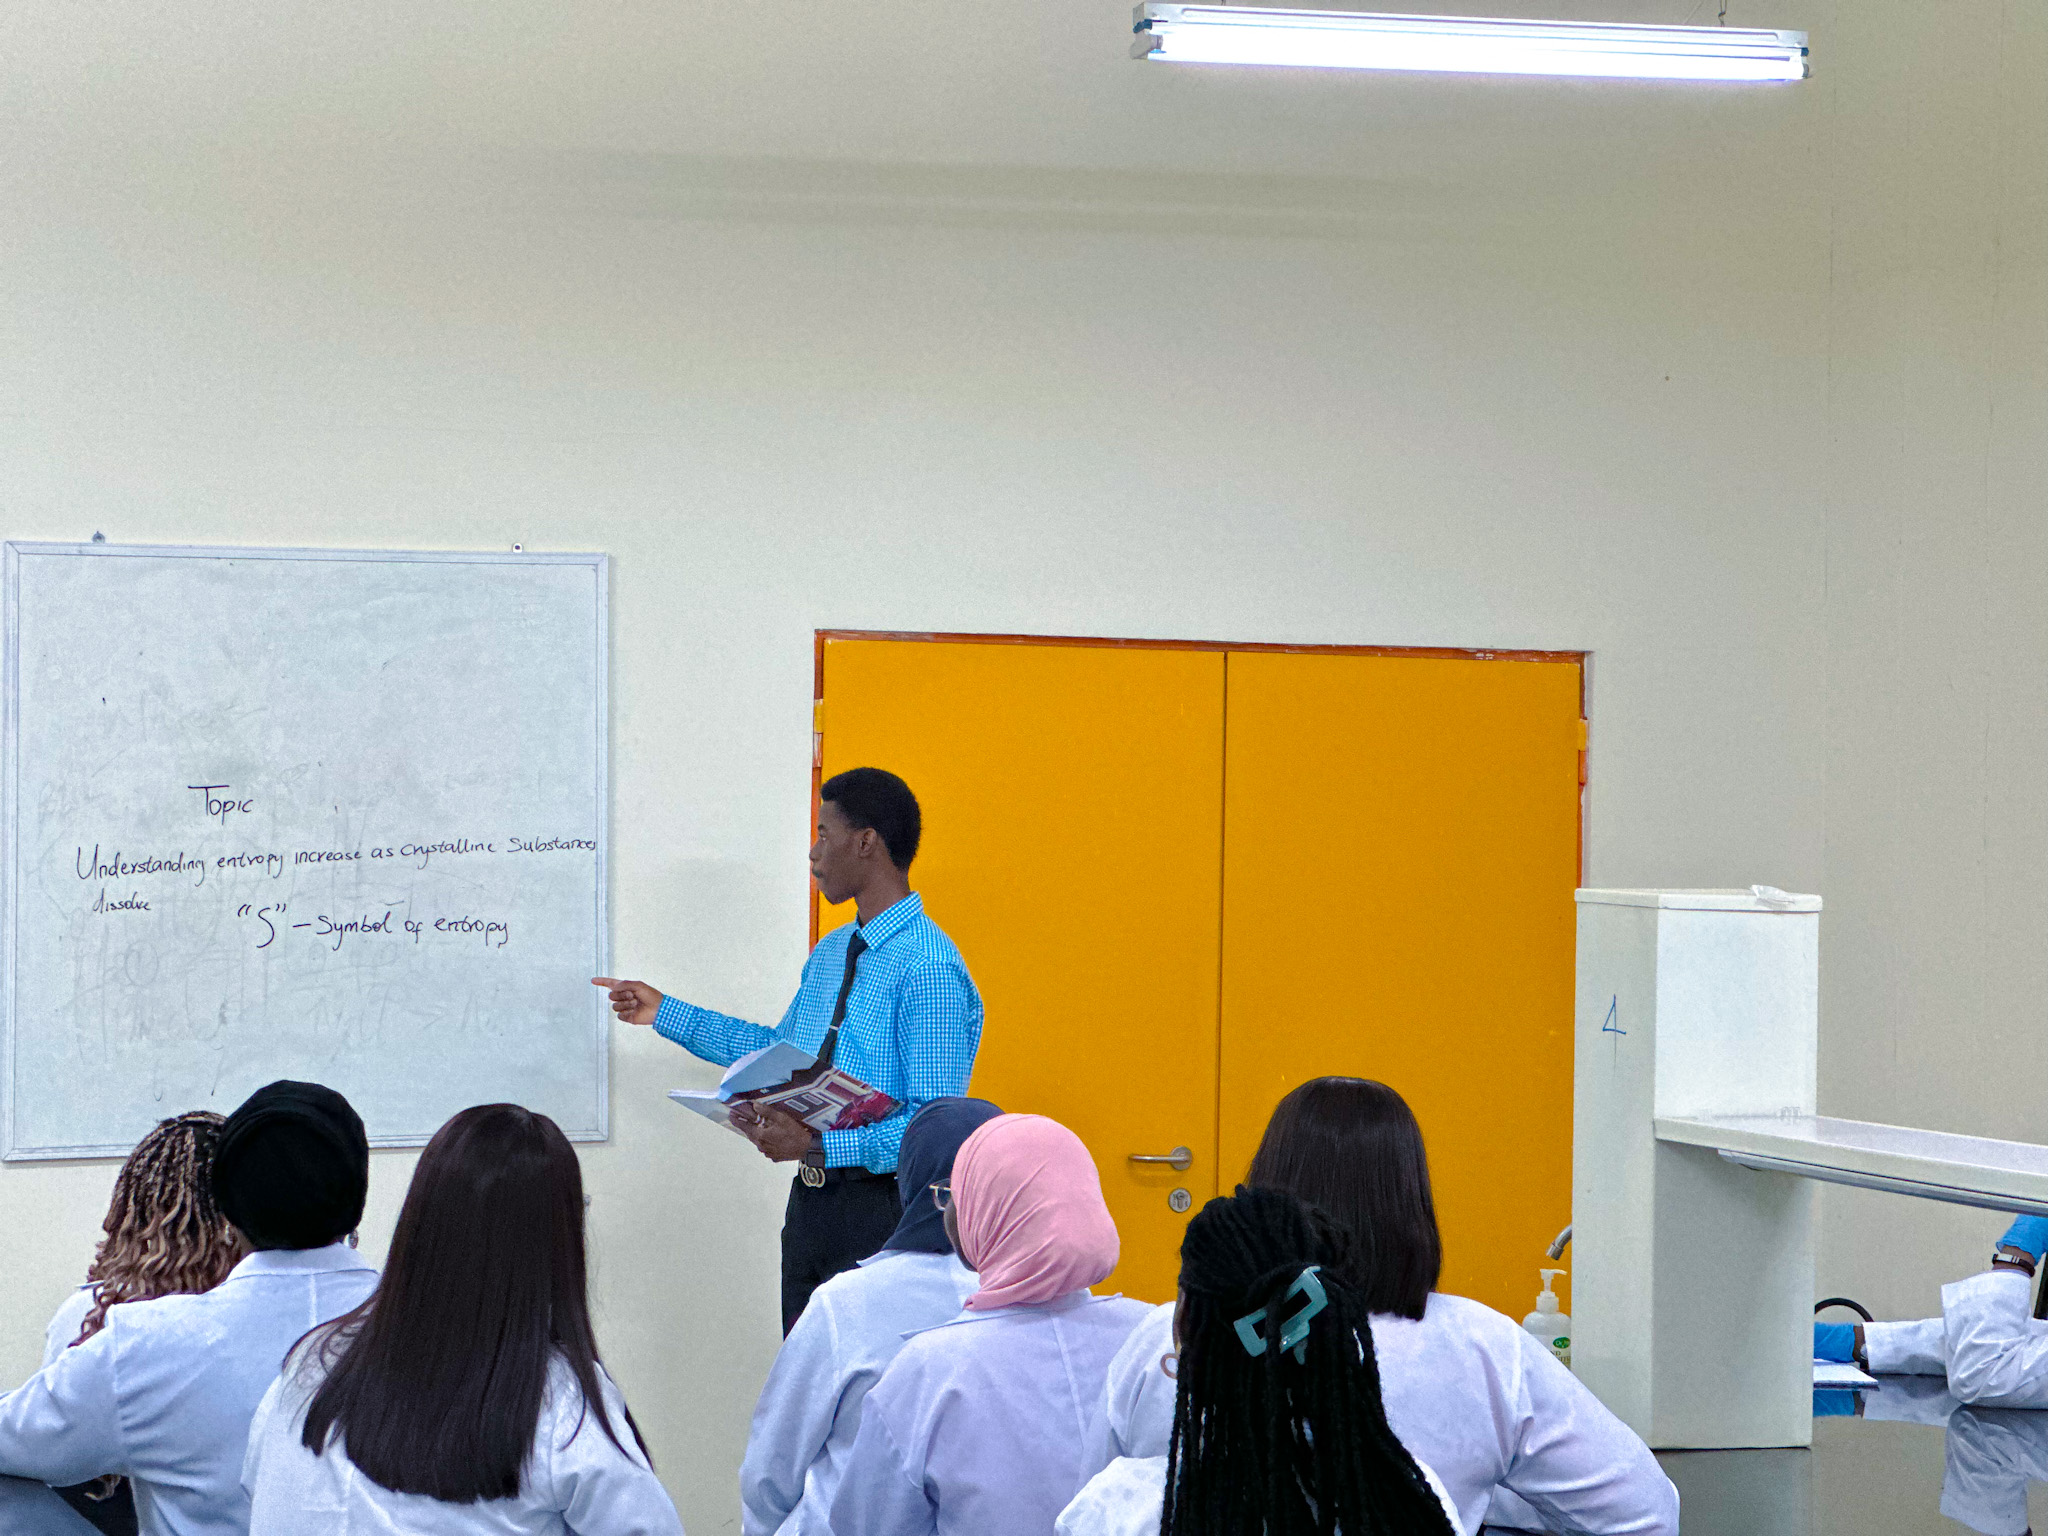 Topic
Understanding entropy increase as Crystalline Substances
dissolve
"S" – Symbol of entropy
4